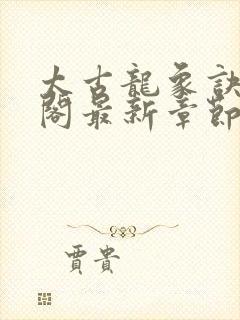 太古龍象訣
閣最新章節
賈貴